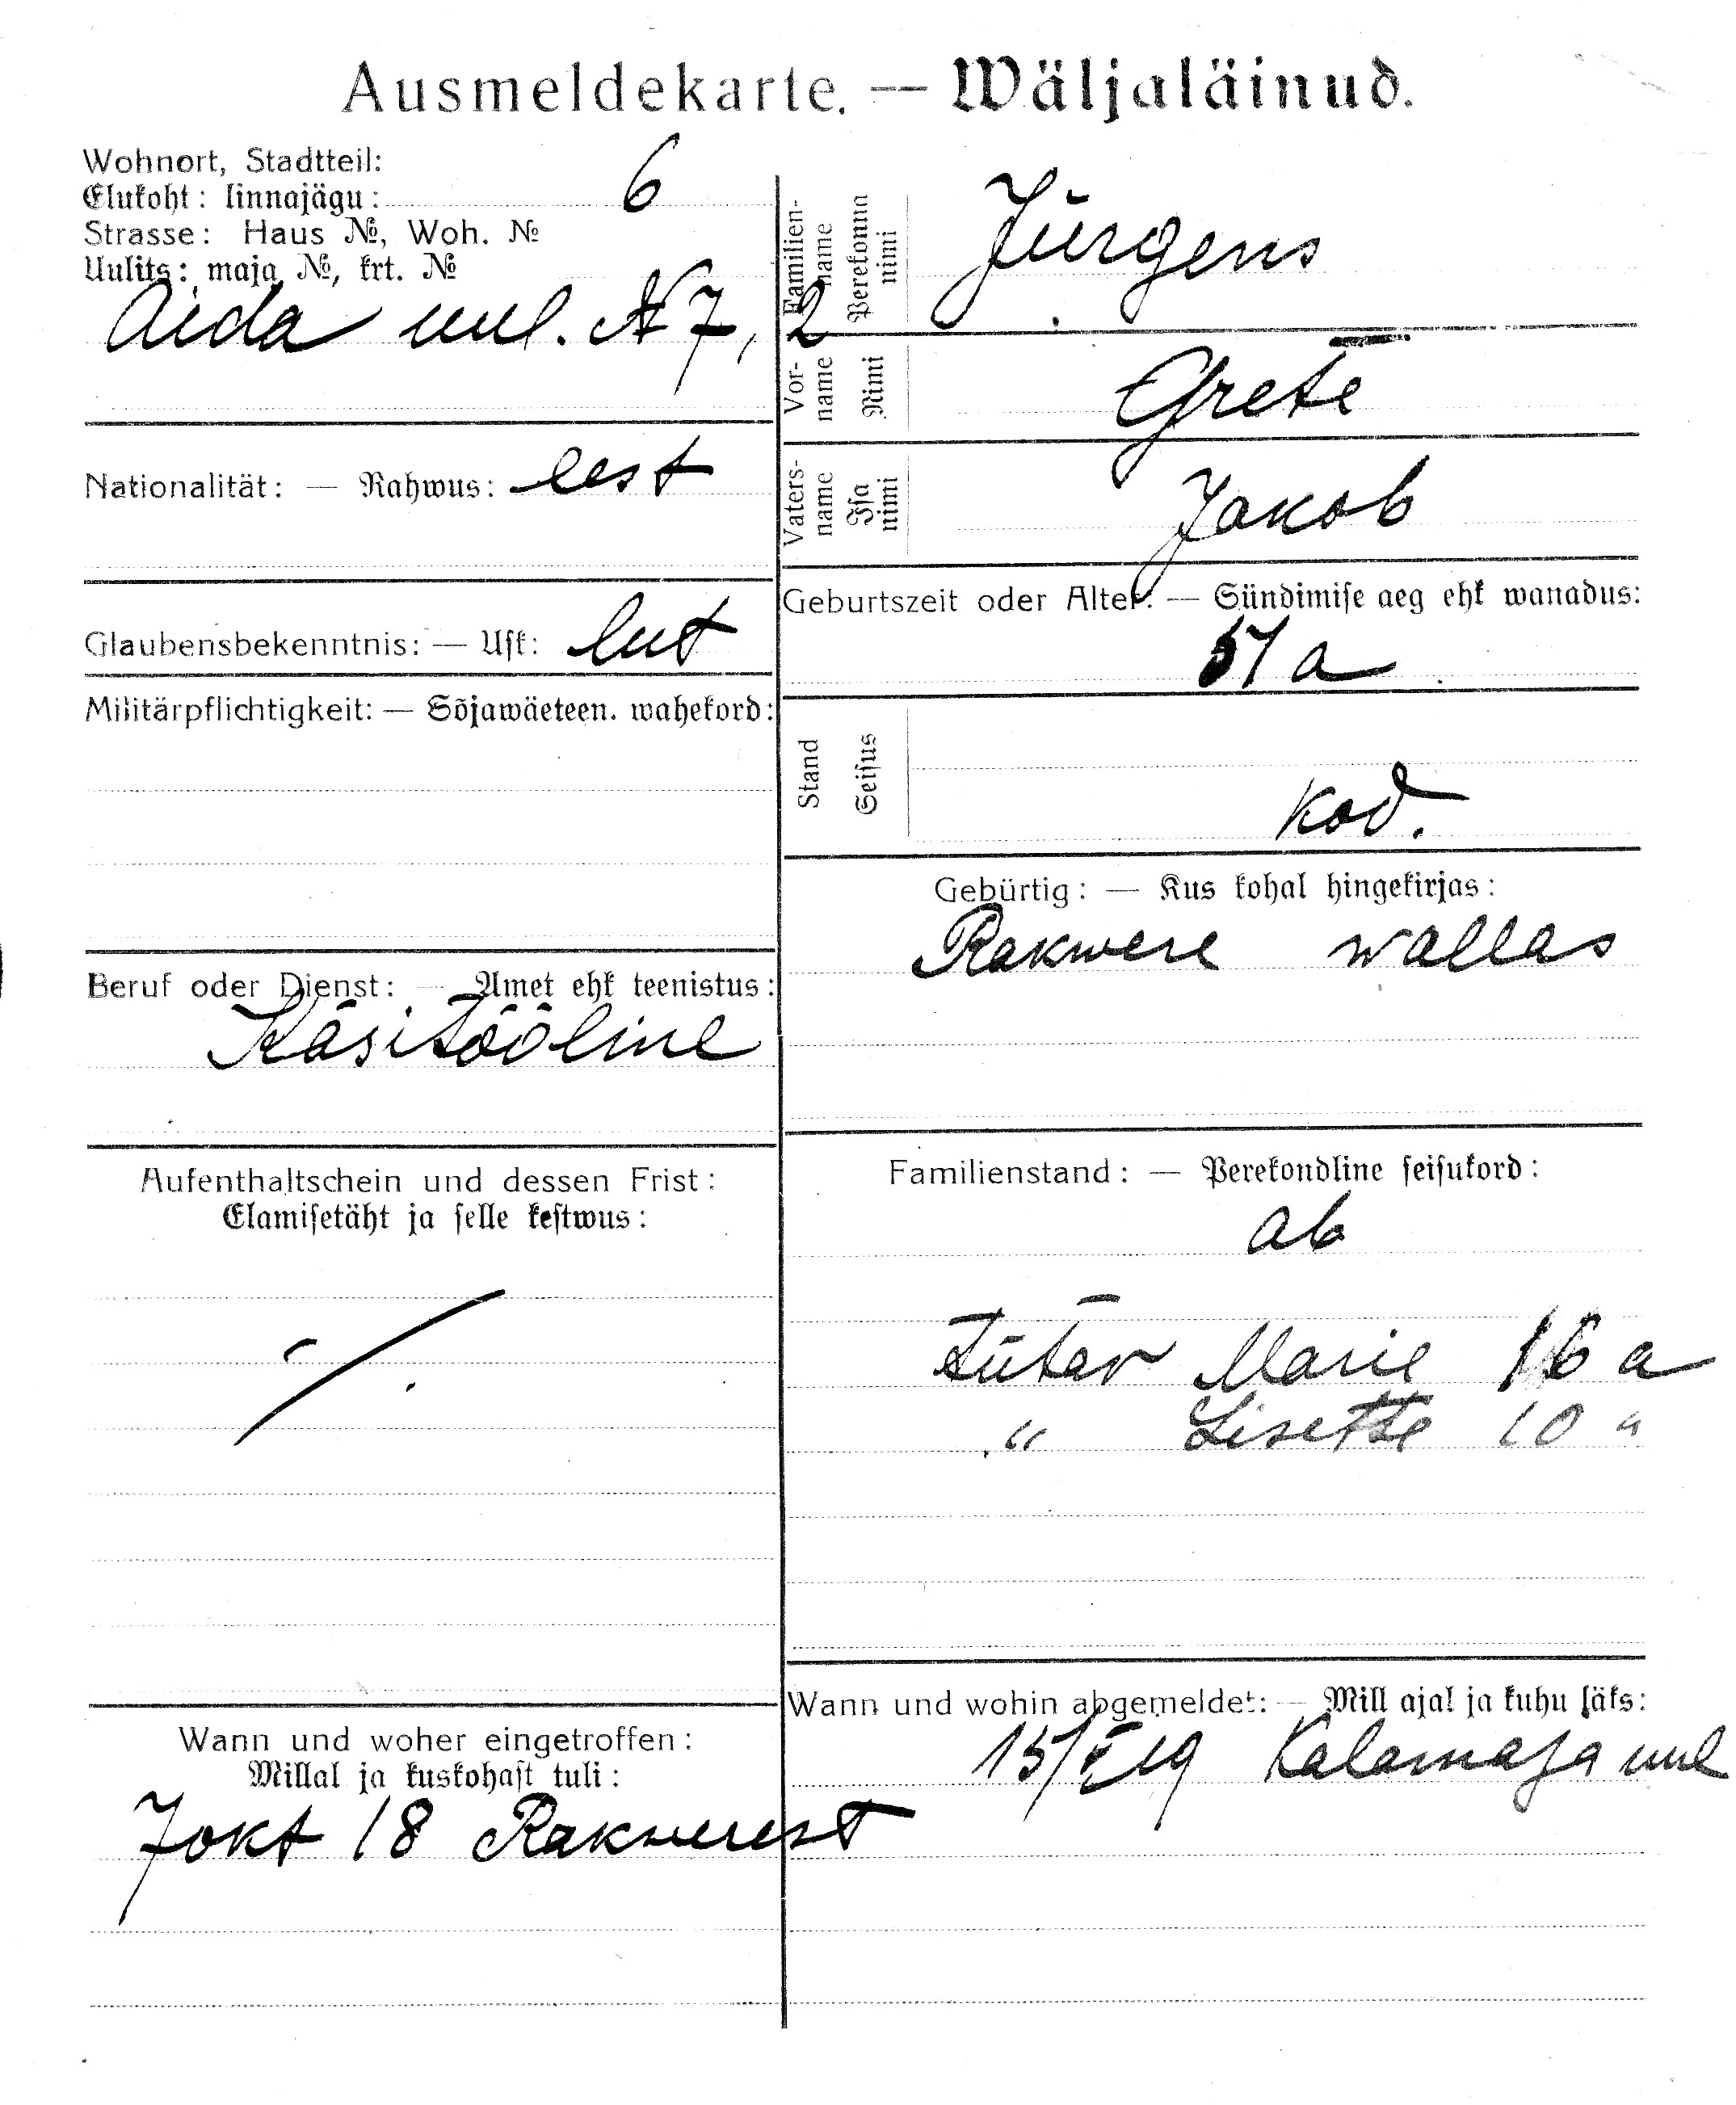 Ausmeldekarte. — Wäljaläinud.
Wohnort, Stadtteil:
Elukoht: linnajägu: 6
Strasse: Haus №, Woh. №
Uulits: maja №, krt. №
Aida uul. № 7, 2
Nationalität: — Rahwus: eest
Glaubensbekenntnis: — Usk: lut
Militärpflichtigkeit: — Sõjawäeteen. wahekord:
Beruf oder Dienst: — Amet ehk teenistus:
Käsitööline
Aufenthaltschein und dessen Frist:
Elamisetäht ja selle kestwus:
Wann und woher eingetroffen:
Millal ja kuskohast tuli:
7 okt 18 Rakwerest
Familien-
name
Perekonna
nimi
Jürgens
Vor-
name
Nimi
Grete
Vaters-
name
Isa
nimi
Jakob
Geburtszeit oder Alter: — Sündimise aeg ehk wanadus:
57 a
Stand
Seisus
kod.
Gebürtig: — Kus kohal hingekirjas:
Rakwere wallas
Familienstand: — Perekondline seisukord:
ab
tütar Marie 16 a
" Lisette 10 "
Wann und wohin abgemeldet: — Mill ajal ja kuhu läks:
15/V 19 Kalamaja uul